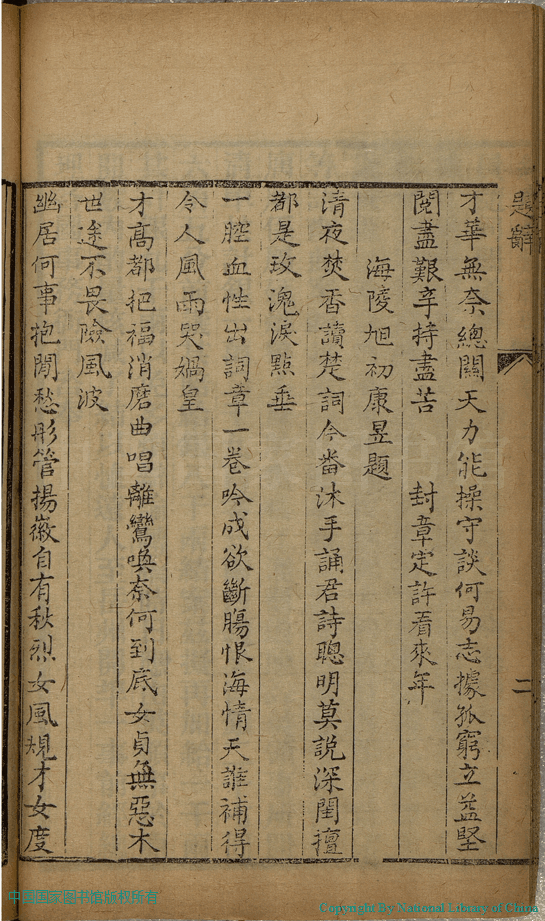 題辭
二
才華無奈總關天力能操守談何易志據孤窮立益堅
閱盡艱辛持盡苦 封章定許看來年
海陵旭初康昱題
清夜焚香讀楚詞今番沐手誦君詩聰明莫說深閨擅
都是玫瑰淚點垂
一腔血性出詞章一卷吟成欲斷腸恨海情天誰補得
令人風雨哭媧皇
才高都把福消磨曲唱離鸞喚奈何到底女貞無惡木
世途不畏險風波
幽居何事抱閒愁彤管揚徽自有秋烈女風規才女度
中国国家图书馆版权所有
Copyright By National Library of China